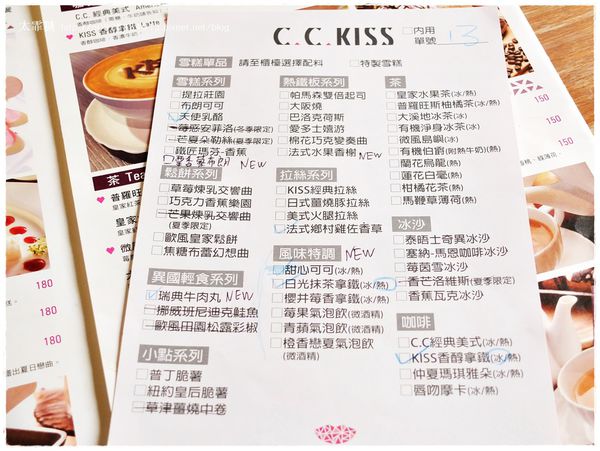 C.C.KISS
□內用
單號 13
雪糕單品 請至櫃檯選擇配料 □特製雪糕
雪糕系列
□提拉莊園
□布朗可可
□天使乳酪
□莓惑安菲洛(冬季限定)
□芒夏朵勒絲(夏季限定)
□鐵匠瑪芬-香蕉
NEW
鬆餅系列
□草莓煉乳交響曲
□巧克力香蕉樂園
□芒果煉乳交響曲
(夏季限定)
□歐風皇家鬆餅
□焦糖布蕾幻想曲
異國輕食系列
□瑞典牛肉丸 NEW
□挪威班尼迪克鮭魚
□歐風田園松露彩椒
小點系列
□普丁脆薯
□紐約皇后脆薯
□草津薑燒中卷
熱鐵板系列
□帕馬森雙倍起司
□大阪燒
□巴洛克荷斯
□愛多士嬉游
□棉花巧克變奏曲
□法式水果香榭 NEW
拉絲系列
□KISS經典拉絲
□日式薑燒豚拉絲
□美式火腿拉絲
□法式鄉村雞佐香草
風味特調 NEW
□甜心可可(冰/熱)
□日光抹茶拿鐵(冰/熱)
□櫻井莓香拿鐵(冰/熱)
□莓果氣泡飲(微酒精)
□青蘋氣泡飲(微酒精)
□橙香戀夏氣泡飲
(微酒精)
茶
□皇家水果茶(冰/熱)
□普羅旺斯柚橘茶(冰/熱)
□大溪地冰茶(冰)
□有機淨身冰茶(冰)
□微風島嶼(冰)
□有機伯爵(附熱牛奶)(熱)
□蘭花烏龍(熱)
□蓮花白毫(熱)
□柑橘花茶(熱)
□馬鞭草薄荷(熱)
冰沙
□泰晤士奇異冰沙
□塞納-馬恩咖啡冰沙
□莓茵雪冰沙
□香芒洛維斯(夏季限定)
□香蕉瓦克冰沙
咖啡
□C.C經典美式(冰/熱)
□KISS香醇拿鐵(冰/熱)
□仲夏瑪琪雅朵(冰/熱)
□唇吻摩卡(冰/熱)
C.C.經典美式
KISS 香醇拿鐵 Latte
茶 Tea
普羅旺
皇家
微
180
180
180
180
150
150
150
150